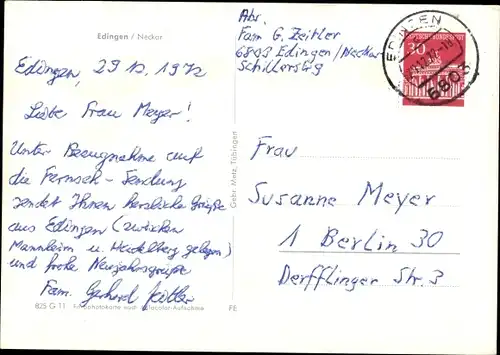 Edingen / Neckar
Edingen, 29.12.1972
Liebe Frau Meyer!
Unter Bezugnahme auf
die Fernseh-Sendung
sendet Ihnen herzliche Grüße
aus Edingen (zwischen
Mannheim u. Heidelberg gelegen)
und frohe Neujahrsgrüße
Fam. Gerhard Zeitler
825 G 11 nach Aufnahme
PE
Gebr. Metz, Tübingen
Abs.
Fam G. Zeitler
6803 Edingen/Neckar
Schillerstr
EDINGEN
6803
DEUTSCHE BUNDESPOST
30
Frau
Susanne Meyer
1 Berlin 30
Derfflinger Str. 3